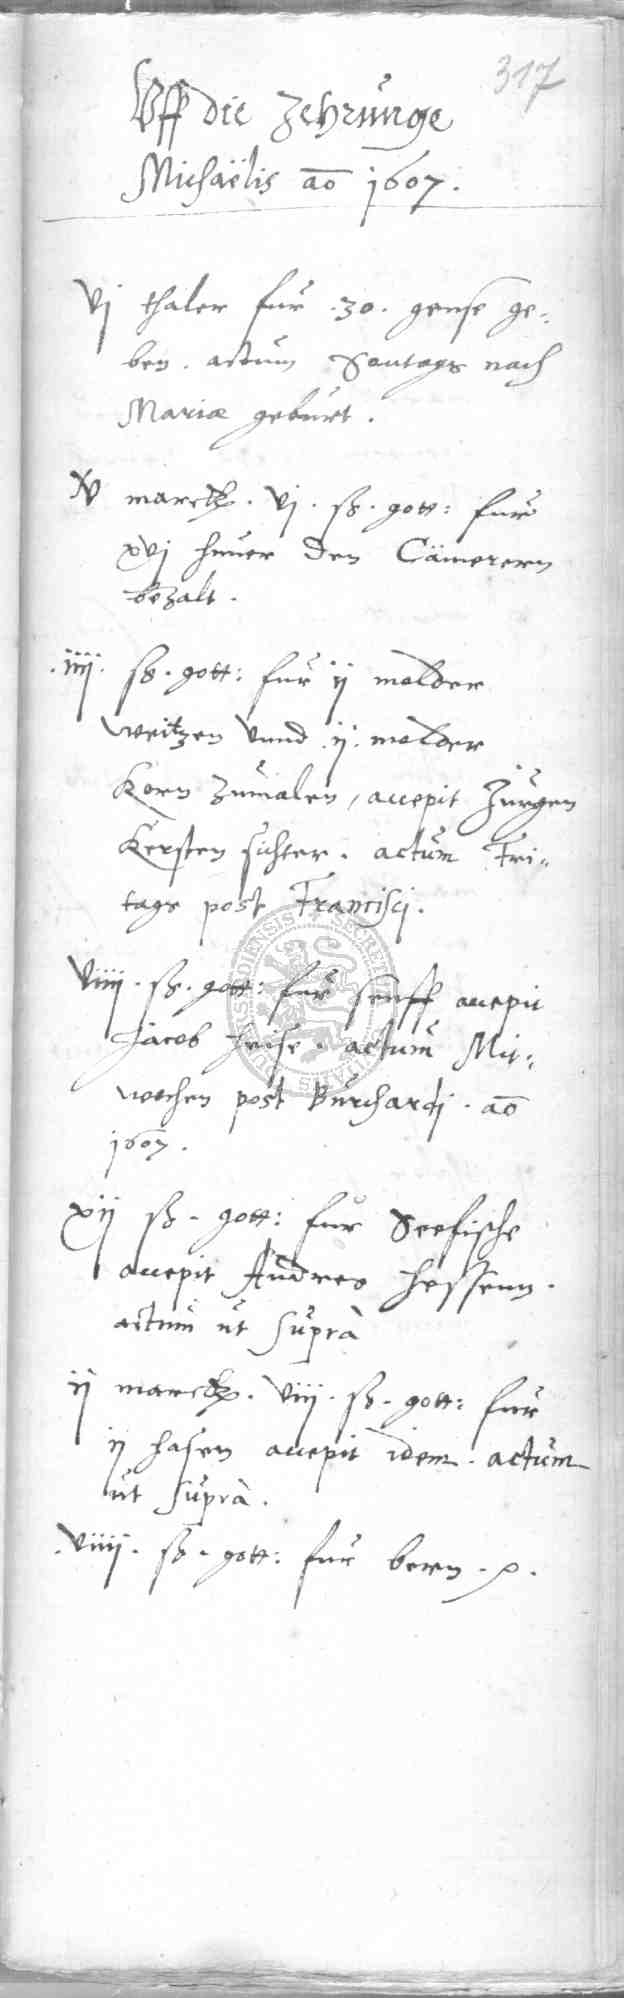 317
Vff die Zehrunge
Michaëlis ao 1607.
vj thaler fur .30. gense ge-
ben. actum Sontags nach
Mariæ geburt.
xv marck. vj. ß. gott: fur
xvj huner den Cämerern
bezalt.
.iiij. ß. gott: fur ij molder
weitzen vnnd .ij. molder
Korn zumalen, accepit Jurgen
Kersten sichter. actum Fri-
tags post Francisci.
viiij. ß. gott: fur senff accepit
Jacob Heise. actum Mit-
wochen post Burchardj. ao
1607.
xij ß. gott: fur Seefische
accepit Andres Hessenn.
actum ut suprà
ij marck. viij. ß. gott: fur
ij hasen accepit idem. actum
ut suprà.
.viiij. ß. gott: fur bern. p.